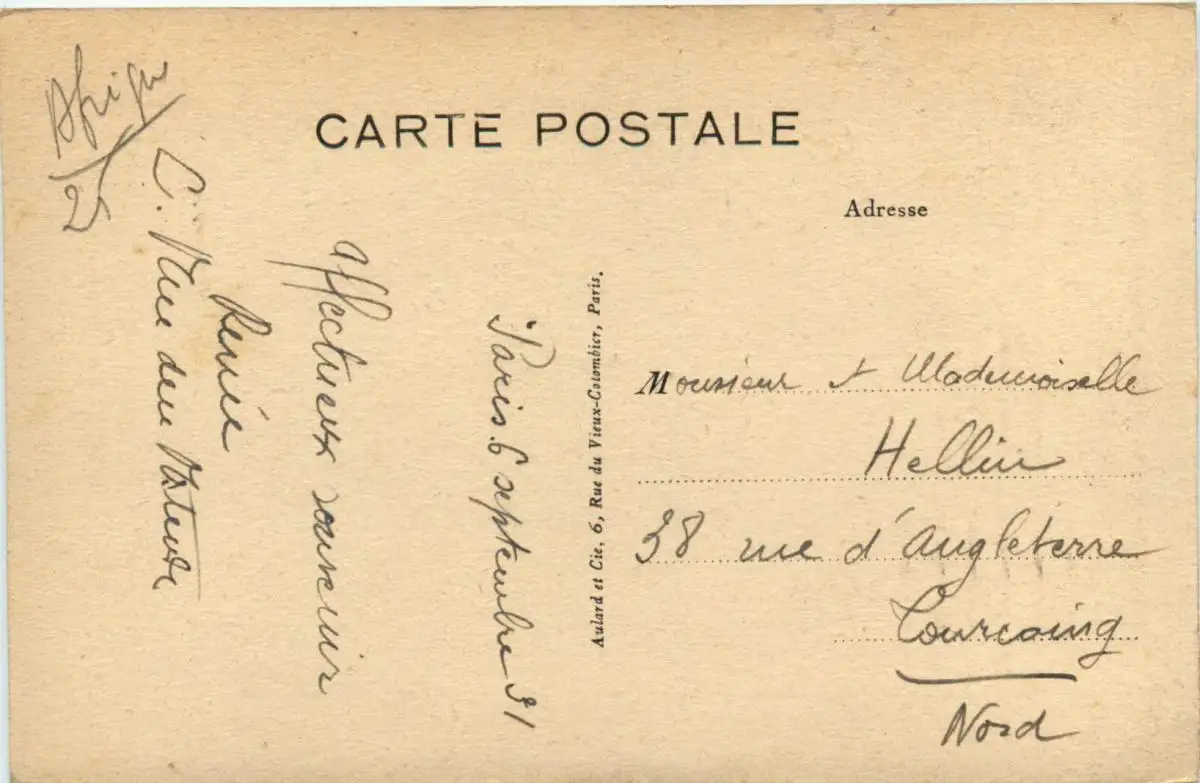 CARTE POSTALE
Adresse
Paris 6 septembre 31
affectueux souvenir
Renée
Afrique
2
Aulard et Cie, 6, Rue du Vieux-Colombier, Paris.
Monsieur et Mademoiselle
Hellin
38 rue d'Angleterre
Tourcoing
Nord